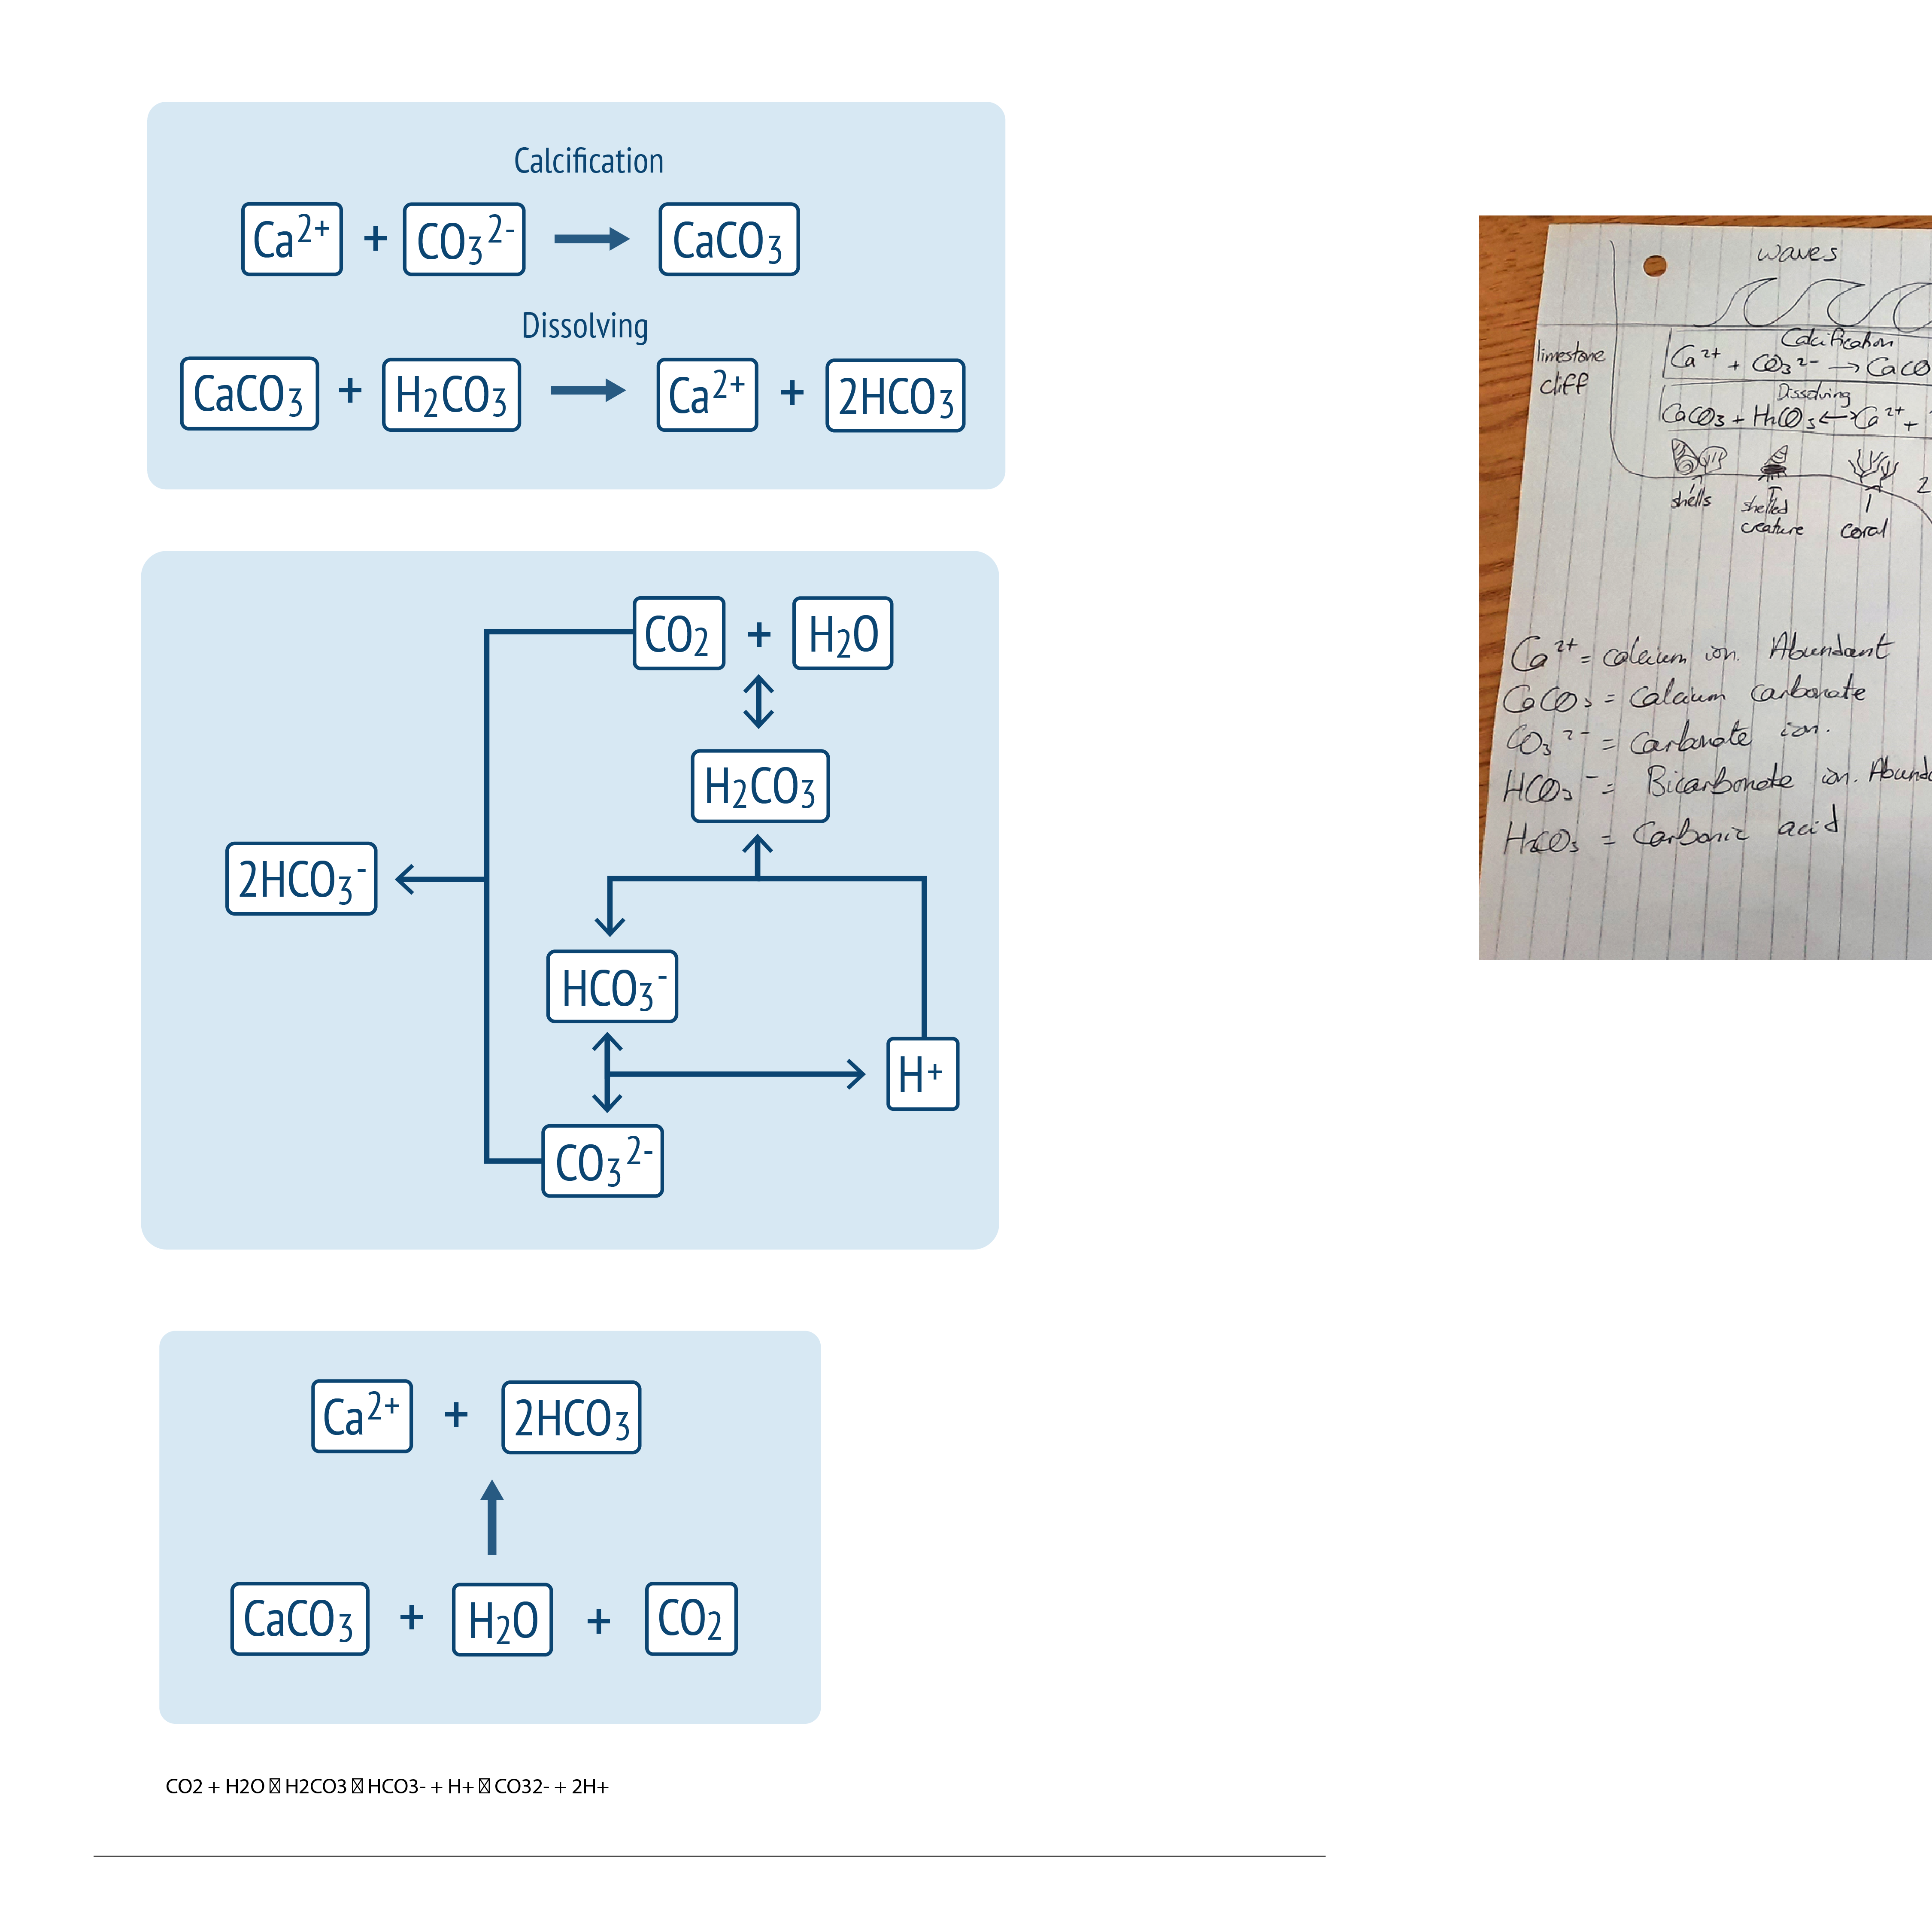 Calcification
Ca²⁺ + CO₃²⁻ → CaCO₃
Dissolving
CaCO₃ + H₂CO₃ → Ca²⁺ + 2HCO₃
CO₂ + H₂O
H₂CO₃
2HCO₃⁻
HCO₃⁻
H⁺
CO₃²⁻
Ca²⁺ + 2HCO₃
CaCO₃ + H₂O + CO₂
CO2 + H2O H2CO3 HCO3- + H+ CO32- + 2H+
waves
Calcification
Ca²⁺ + CO₃²⁻ → CaCO
limestone
cliff
Dissolving
CaCO₃ + H₂CO₃ ↔ Ca²⁺ +
2
shells
shelled
creature
coral
Ca²⁺ = calcium ion. Abundant
CaCO₃ = Calcium carbonate
CO₃²⁻ = Carbonate ion.
HCO₃⁻ = Bicarbonate ion.
H₂CO₃ = Carbonic acid